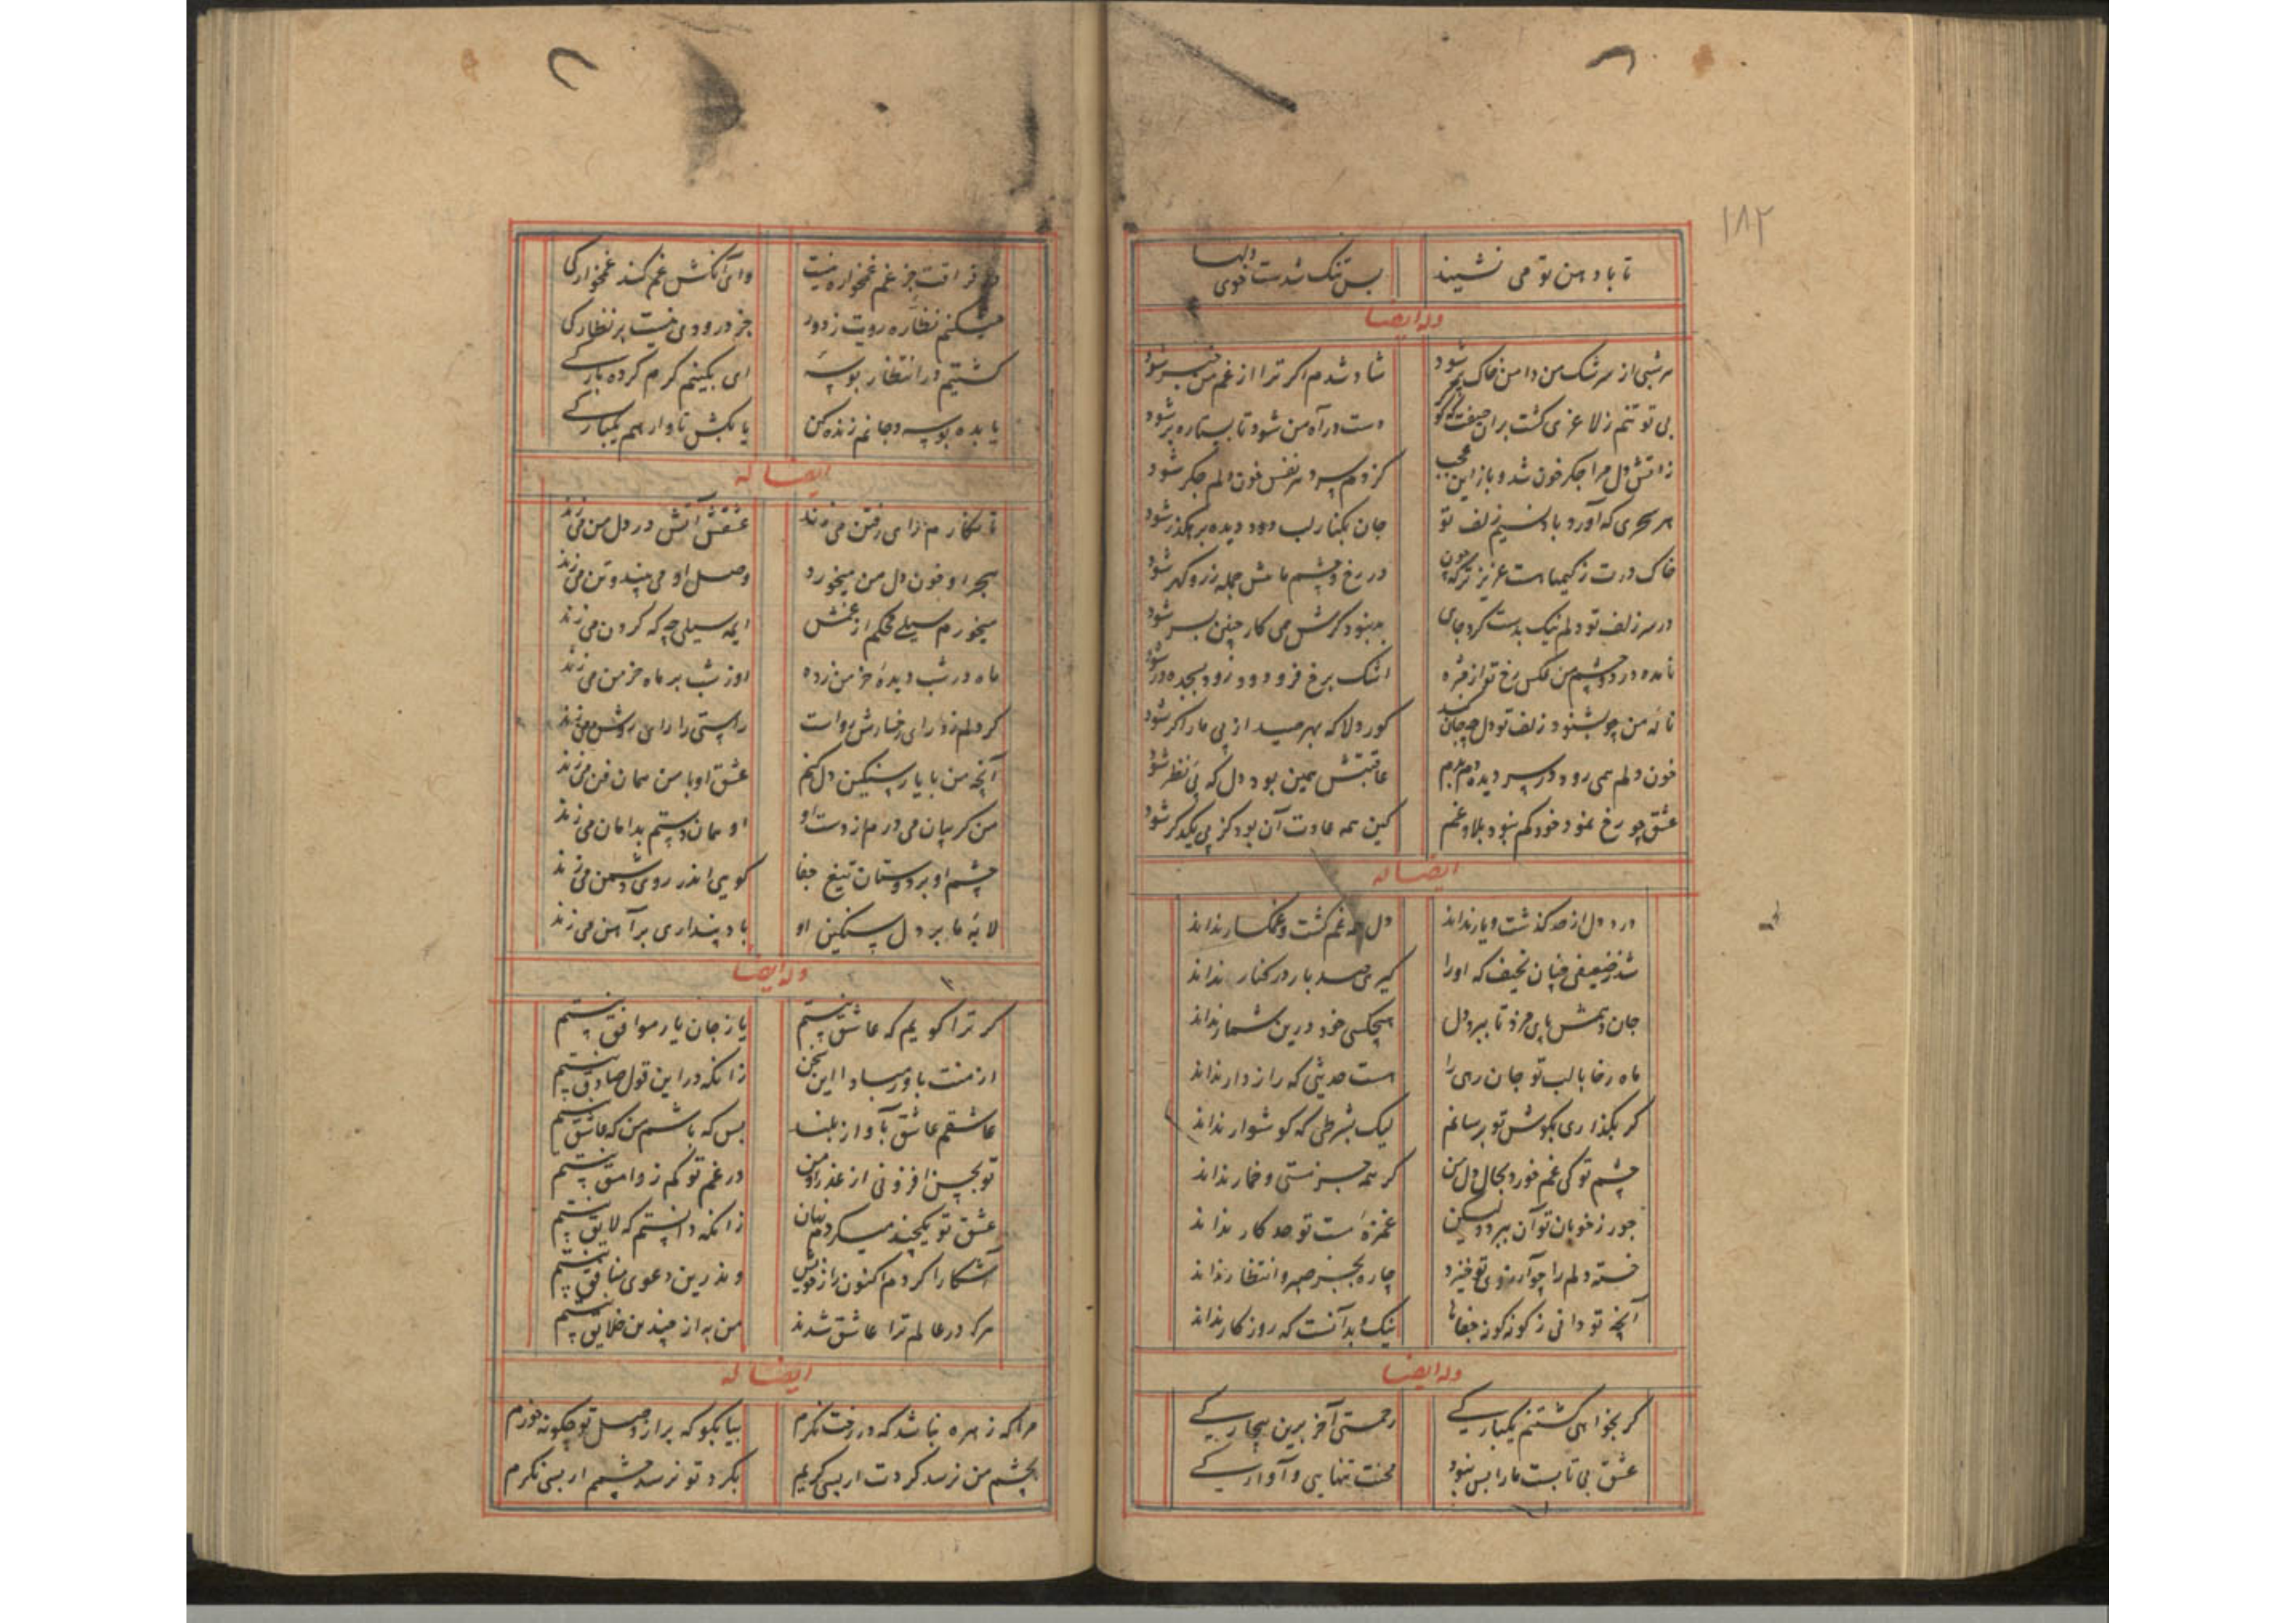 ۱۸۲
تا باد هن تو می نشیند بس تنک شدست خوی دلها
وله ایضا
هر شبی از سرشک من دامن خاک تر شود شاد شدم اکر ترا از غم من خبر شود
بی تو تنم ز لاغری کشت بران صفت که کر دست در آه من شود تا بستاره بر شود
زاتش دل مرا جکر خون شد و باز این عجب کز دم سرد هر نفس خون دلم جکر شود
هر سحری که آورد باد نسیم زلف تو جان بکنار لب دود دیده برهکذر شود
خاک درت ز کیمیا هست عزیز تر که چون در رخ و چشم ما مش جمله زر و کهر شود
در سر زلف تو دلم نیک بدست کرد جای بد نبود کرش می کار چنین بسر شود
نامده در دو چشم من عکس رخ تو از مژه اشک برخ فرو دود زود بسجده در شود
ناله من چو بشنود زلف تو دل چه جان کند کور دلا که بهر صید از پی مار اکر شود
خون دلم همی رود در سر دیده دم بدم عاقبتش همین بود دل که پی نظر شود
عشق چو رخ نمود خود کم نبود بلا و غم کین همه عادت آن بود کز پی یکدکر شود
ایضا له
درد دل از حد کذشت و یار نداند دل همه غم کشت و غمکسار نداند
شد ز ضعیفی چنان نحیف که اورا کیری صد بار در کنار نداند
جان دهمش پای مزد تا ببرد دل هیچکسی خود درین شمار نداند
ماه رخا با لب تو جان رهی را هست حدیثی که رازدار نداند
کر بکذاری بکوش تو برسانم لیک بشرطی که کوشوار نداند
چشم تو کی غم خورد بحال دل من کر همه جز مستی و خمار نداند
جور ز خوبان توان ببرد ولیکن غمزه است تو حد کار نداند
خسته دلم را چو آرزوی تو خیزد چاره بجز صبر و انتظار نداند
آنچ تو دانی ز کوز کوز جفاها نیک بدآنست که روزکار نداند
وله ایضا
کر بخواهی کشتنم یکبارکے رحمتی آخر برین بیچارکے
عشق بی تابست مارا بس نبود محنت تنهایی و آوارکے
در فراقت جز غم غمخواره نیت وای آنکش غم کند غمخوارکی
میکنم نظاره رویت ز دور جز درودی نیست بر نظارکی
کشتیم در انتظار بوسهٔ ای بکینم کرم کرده بارکے
یا بده بوسه و جانم زنده کن یا بکش تا وارهم یکبارکے
ایضا له
تا نکارم رای رفتن می زند عشقش آتش در دل من می زند
هجر او خون دل من میخورد وصل او می بیند و تن می زند
میخورم سیلے محکم از غمش ایمه سیلی چه که کردن می زند
ماه در شب دیدهٔ خرمن زده او ز شب بر ماه خرمن می زند
کر دلم زد رای رخسارش رواست راستی را رای روشن می زند
آنچه من با یار سنکین دل کنم عشق او با من همان فن می زند
من کریبان می درم از دست او او همان دستم بدامان می زند
چشم او بر دوستان تیغ جفا کویی اندر روی دشمن می زند
لابهٔ ما بر دل سنکین او باد پنداری بر آهن می زند
وله ایضا
کر ترا کویم که عاشق نیستم یا ز جان یار موافق نیستم
از منت باور مبادا این سخن زانکه در این قول صادق نیستم
عاشقم عاشق بآواز بلند بس که باشم من که عاشق نیستم
تو بحسن افزونی از عذرا و من در غم تو کم ز وامق نیستم
عشق تو یکچند میکردم نهان زانکه دانستم که لایق نیستم
آشکارا کردم اکنون راز خویش وندرین دعوی منافق نیستم
هرکه در عالم ترا عاشق شدند من به از چندین خلایق نیستم
ایضا له
مرا که زهره نباشد که در رخت نکرم بیا بکو که بر از وصل تو چکونه خورم
بچشم من نرسد کردت ار بسی کریم بکرد تو نرسد چشمم ار بسی نکرم